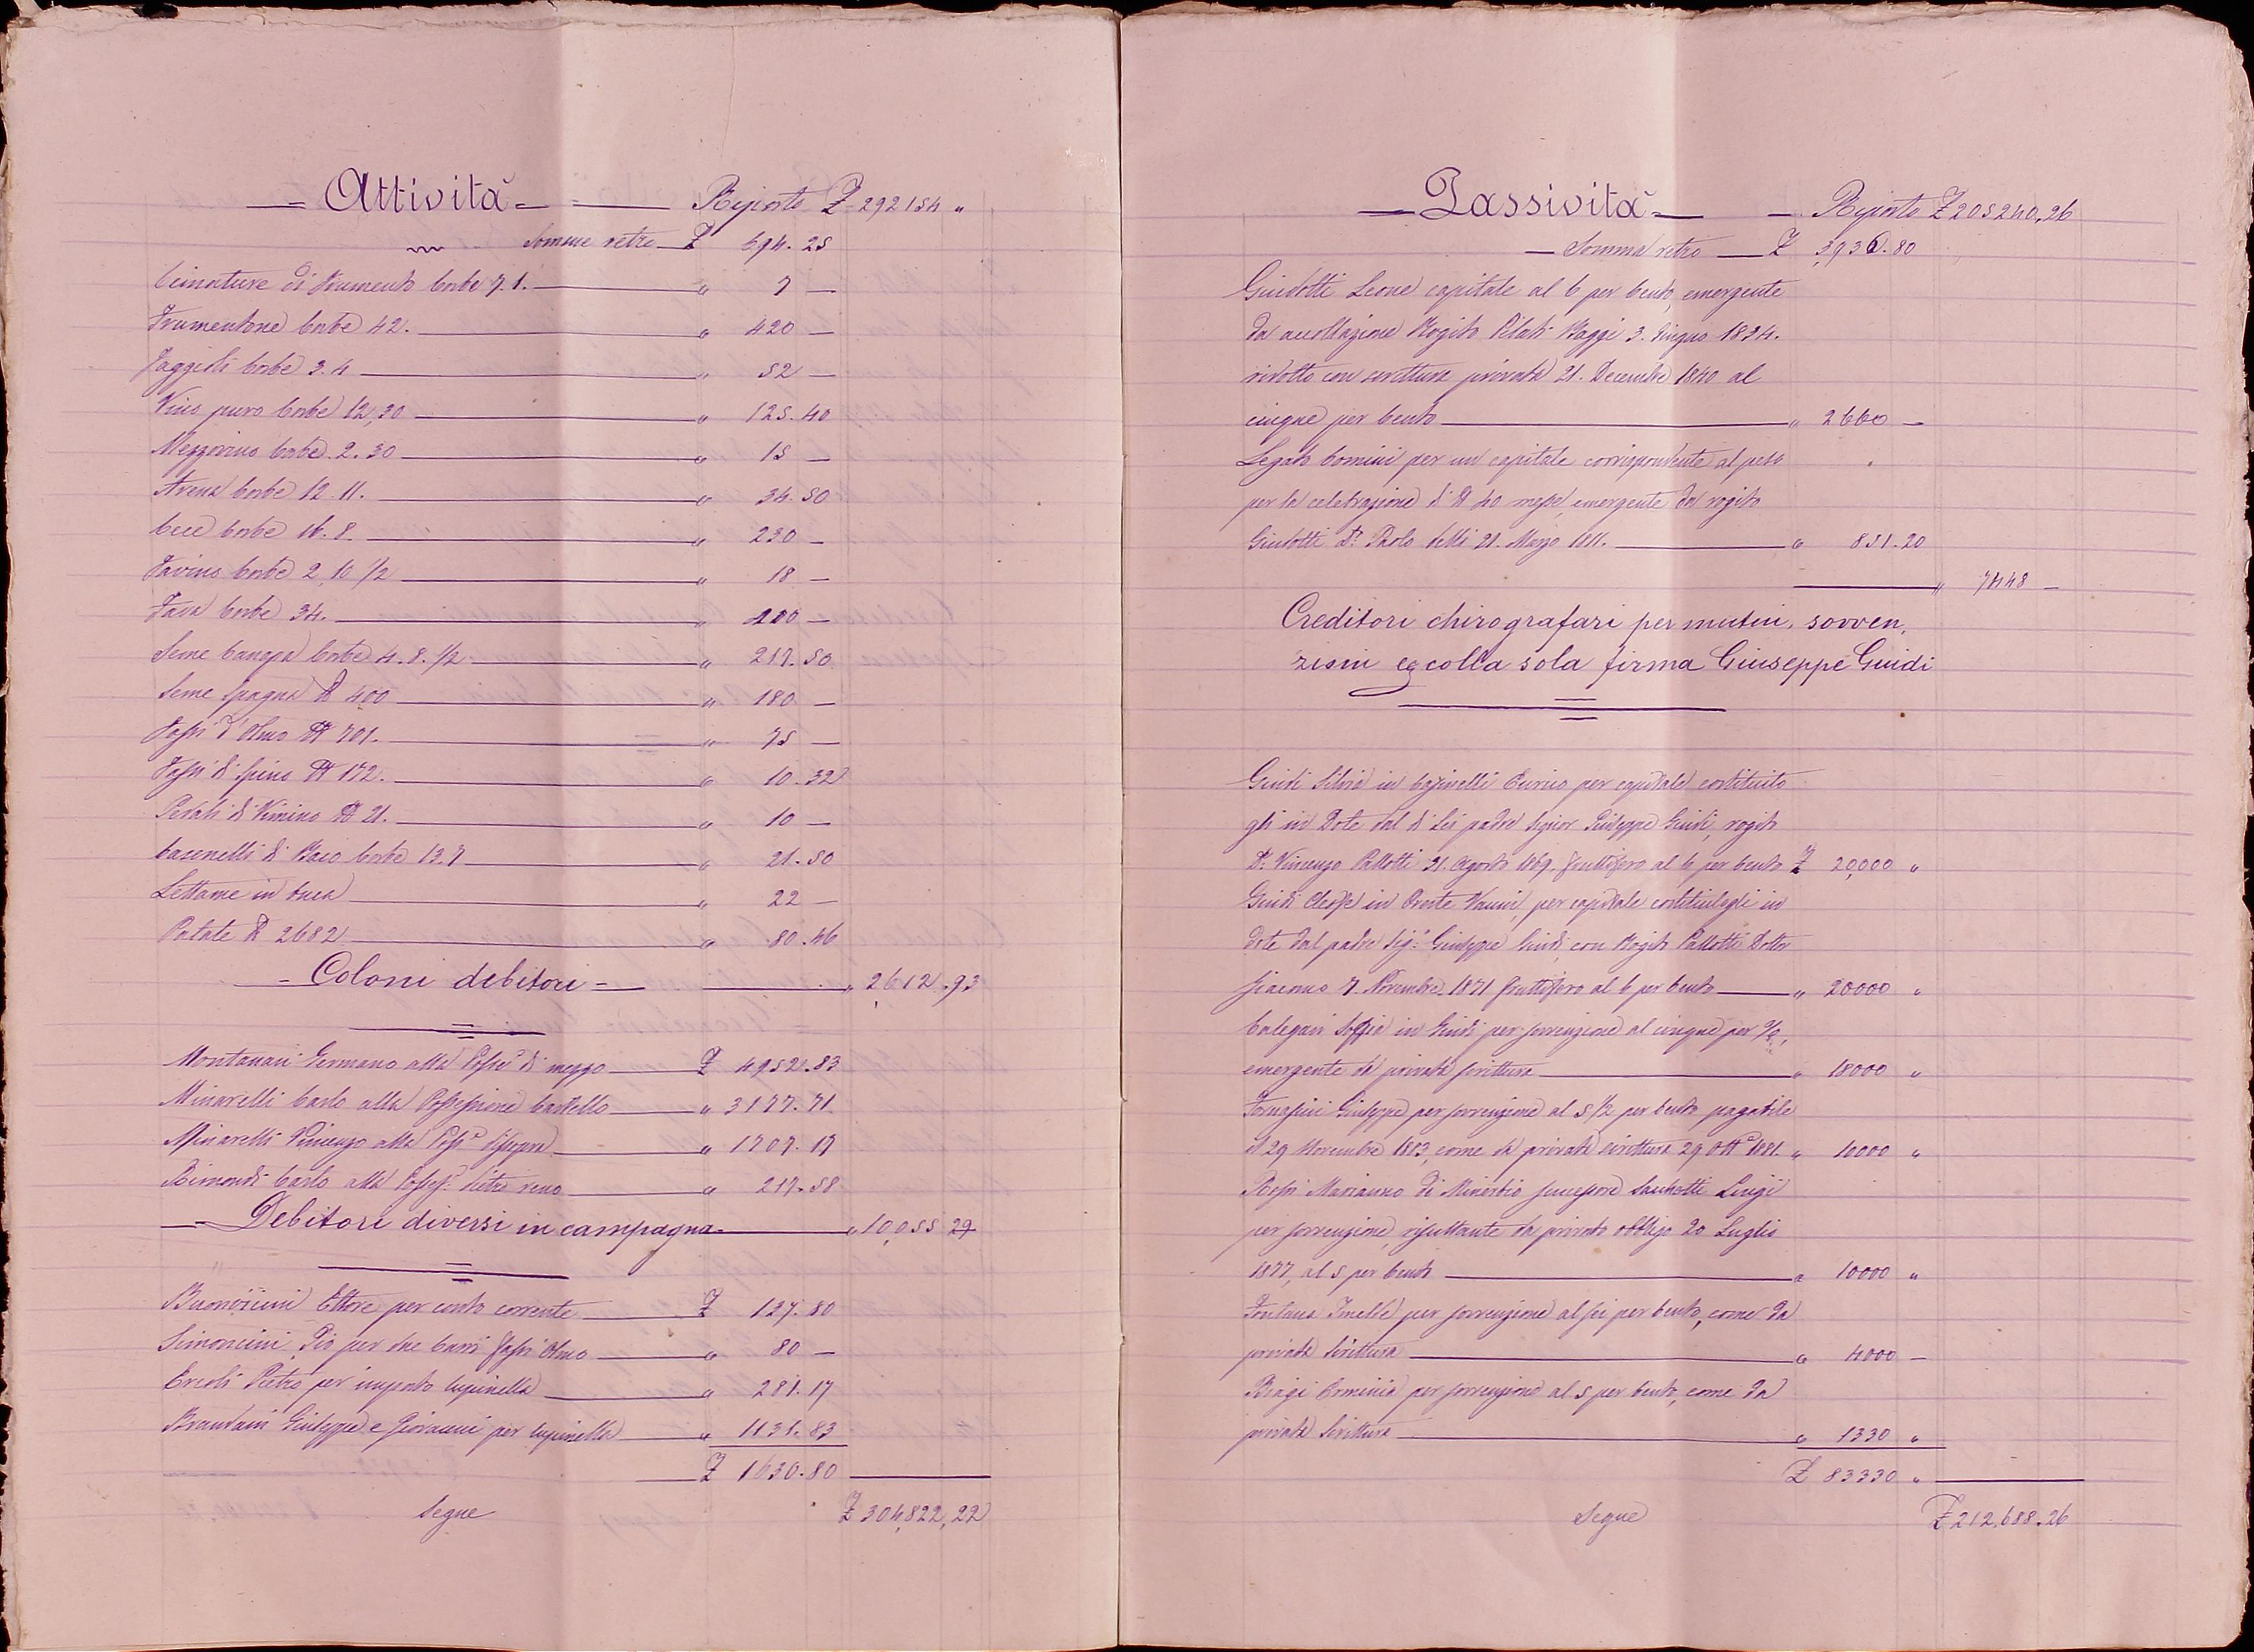 Attività Riporto £ 292154 „
Somme retro £ 594.25
di Frumento Corbe 7.1. „ 7 —
Frumentone Corbe 42. „ 420 —
Faggioli Corbe 3.4 „ 52 —
Vino puro Corbe 12,30 „ 125.40
Mezzovino Corbe 2.30 „ 15 —
Avena Corbe 12.11. „ 34.50
Cece Corbe 16.8. „ 230 —
Favino Corbe 2,10 1/2 „ 18 —
Fava Corbe 34. „ —
Seme Canapa Corbe 4.8.1/2 „ 217.50
Seme Spagna ℔ 400 „ 180 —
Fassi d'Olmo № 701. „ 75 —
Fassi di Spino № 172. „ 10.32
Pedali di Vimino № 21. „ 10 —
di Corbe 13.7 „ 21.50
Lettame in buca „ 22 —
Patate ℔ 2682 „ 80.46
Coloni debitori „ 2,612.93
Montanari Germano alla Possne di mezzo £ 4952.83
Minarelli Carlo alla Possessione Castello „ 3177.71
Minarelli Vincenzo alla Posse disopra „ 1707.17
Rimondi Carlo alla Posses. dietro reno „ 217.58
Debitori diversi in campagna „ 10,055 29
Ettore per conto corrente £ 137.80
Simoncini Pio per due carri fassi Olmo „ 80 —
Ercoli Pietro per importo lupinella „ 281.17
Giuseppe e Giovanni per lupinella „ 1131.83
£ 1630.80
Segue £ 304,822,22
Passività Riporto £ 205240,26
Somma retro £ 3,936.80
Guidotti Leone capitale al 6 per Cento, emergente
da accollazione Rogito Pilati Maggi 3. Giugno 1834.
ridotto con scrittura privata 21. Decembre 1840 al
cinque per Cento „ 2660 —
Legato Comini per un capitale corrispondente al peso
per la celebrazione di № 40 messe, emergente da rogito
Guidotti Dr. Paolo delli 21. Marzo 1811. „ 851.20
„ 7448 —
Creditori chirografari per mutui, sovven,
zioni e colla sola firma Giuseppe Guidi
Guidi Silvia in Enrico per capitale costituito
gli in Dote dal di Lei padre Signor Giuseppe Guidi, rogito
Dr. Vincenzo Pallotti 31. Agosto 1869. fruttifero al 6 per Cento £ 20,000 „
Guidi in Oreste Vanini, per capitale costituitogli in
dote dal padre Sigr. Giuseppe Guidi, con Rogito Pallotti Dottor
Giacomo 7. Novembre 1871 fruttifero al 6 per Cento „ 20000 „
Calegari Soffia in Guidi per sovvenzione al cinque per %,
emergente da privata scrittura „ 18000 „
Fornasini Giuseppe per sovvenzione al 5 1/2 per Cento pagabile
il 29 Novembre 1883, come da privata scrittura 29 Otte 1881. „ 10000 „
Marianno di Minerbio successore Luigi
per sovvenzione, risultante da privato obbligo 20 Luglio
1877, al 5 per Cento „ 10000 „
Fontana Imelde per sovvenzione al sei per Cento, come da
privata Scrittura „ 4000 —
Biagi Erminia per sovvenzione al 5 per Cento, come da
privata Scrittura „ 1330 „
£ 83330 „
Segue £ 212,688.26